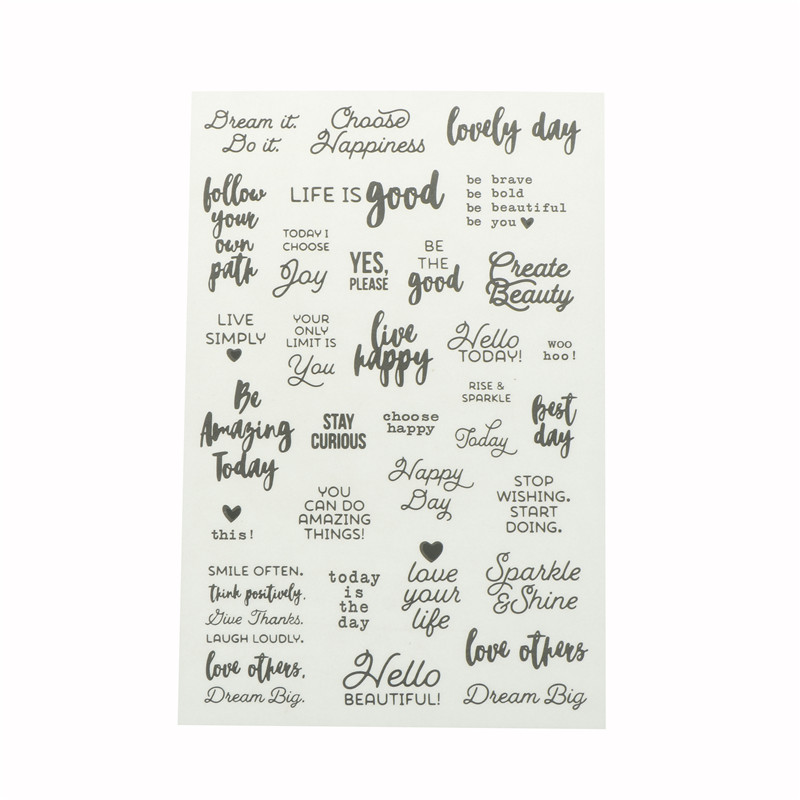 Dream it.
Do it.
Choose
Happiness
lovely day
follow
your
own
path
LIFE IS good
be brave
be bold
be beautiful
be you
TODAY I
CHOOSE
Joy
YES,
PLEASE
BE
THE
good
Create
Beauty
LIVE
SIMPLY
YOUR
ONLY
LIMIT IS
You
live
happy
Hello
TODAY!
woo
hoo!
Be
Amazing
Today
STAY
CURIOUS
choose
happy
RISE &
SPARKLE
Today
Best
day
this!
YOU
CAN DO
AMAZING
THINGS!
Happy
Day
STOP
WISHING.
START
DOING.
SMILE OFTEN.
think positively.
Give Thanks.
LAUGH LOUDLY.
love others.
Dream Big.
today
is
the
day
love
your
life
Sparkle
&Shine
Hello
BEAUTIFUL!
love others
Dream Big